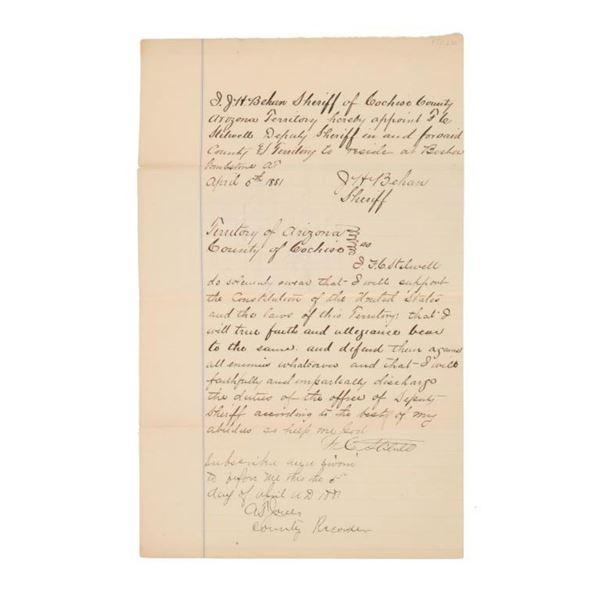 I. J.H. Behan Sheriff of Cochise County
Arozona Territory hereby appoint F C
Stilwell Deputy Sheriff in and forsaid
County & Territory to reside at Bisbee
Tombstone AT
April 5th 1881
J H Behan
Sheriff
Territory of Arizona
County of Cochise ss
I. F. C. Stilwell
do solemnly swear that I will support
the Constitution of the United States
and the laws of this Territory; that I
will true faith and allegiance bear
to the same. and defend them against
all enemies whatsoever and that I will
faithfully and impartially discharge
the duties of the office of Deputy
Sheriff according to the best of my
abilities so help me God
F. C. Stilwell
Subscribed and sworn
to before me this the 5
day of April A D 1881
A T Jones
County Recorder